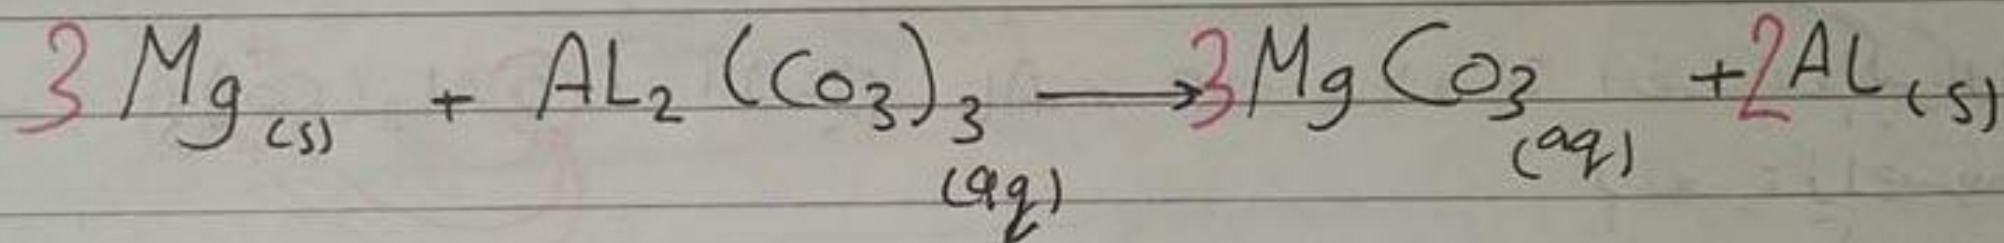 3 Mg(s) + AL2 (Co3)3 (aq) → 3 Mg Co3 (aq) + 2 AL (s)